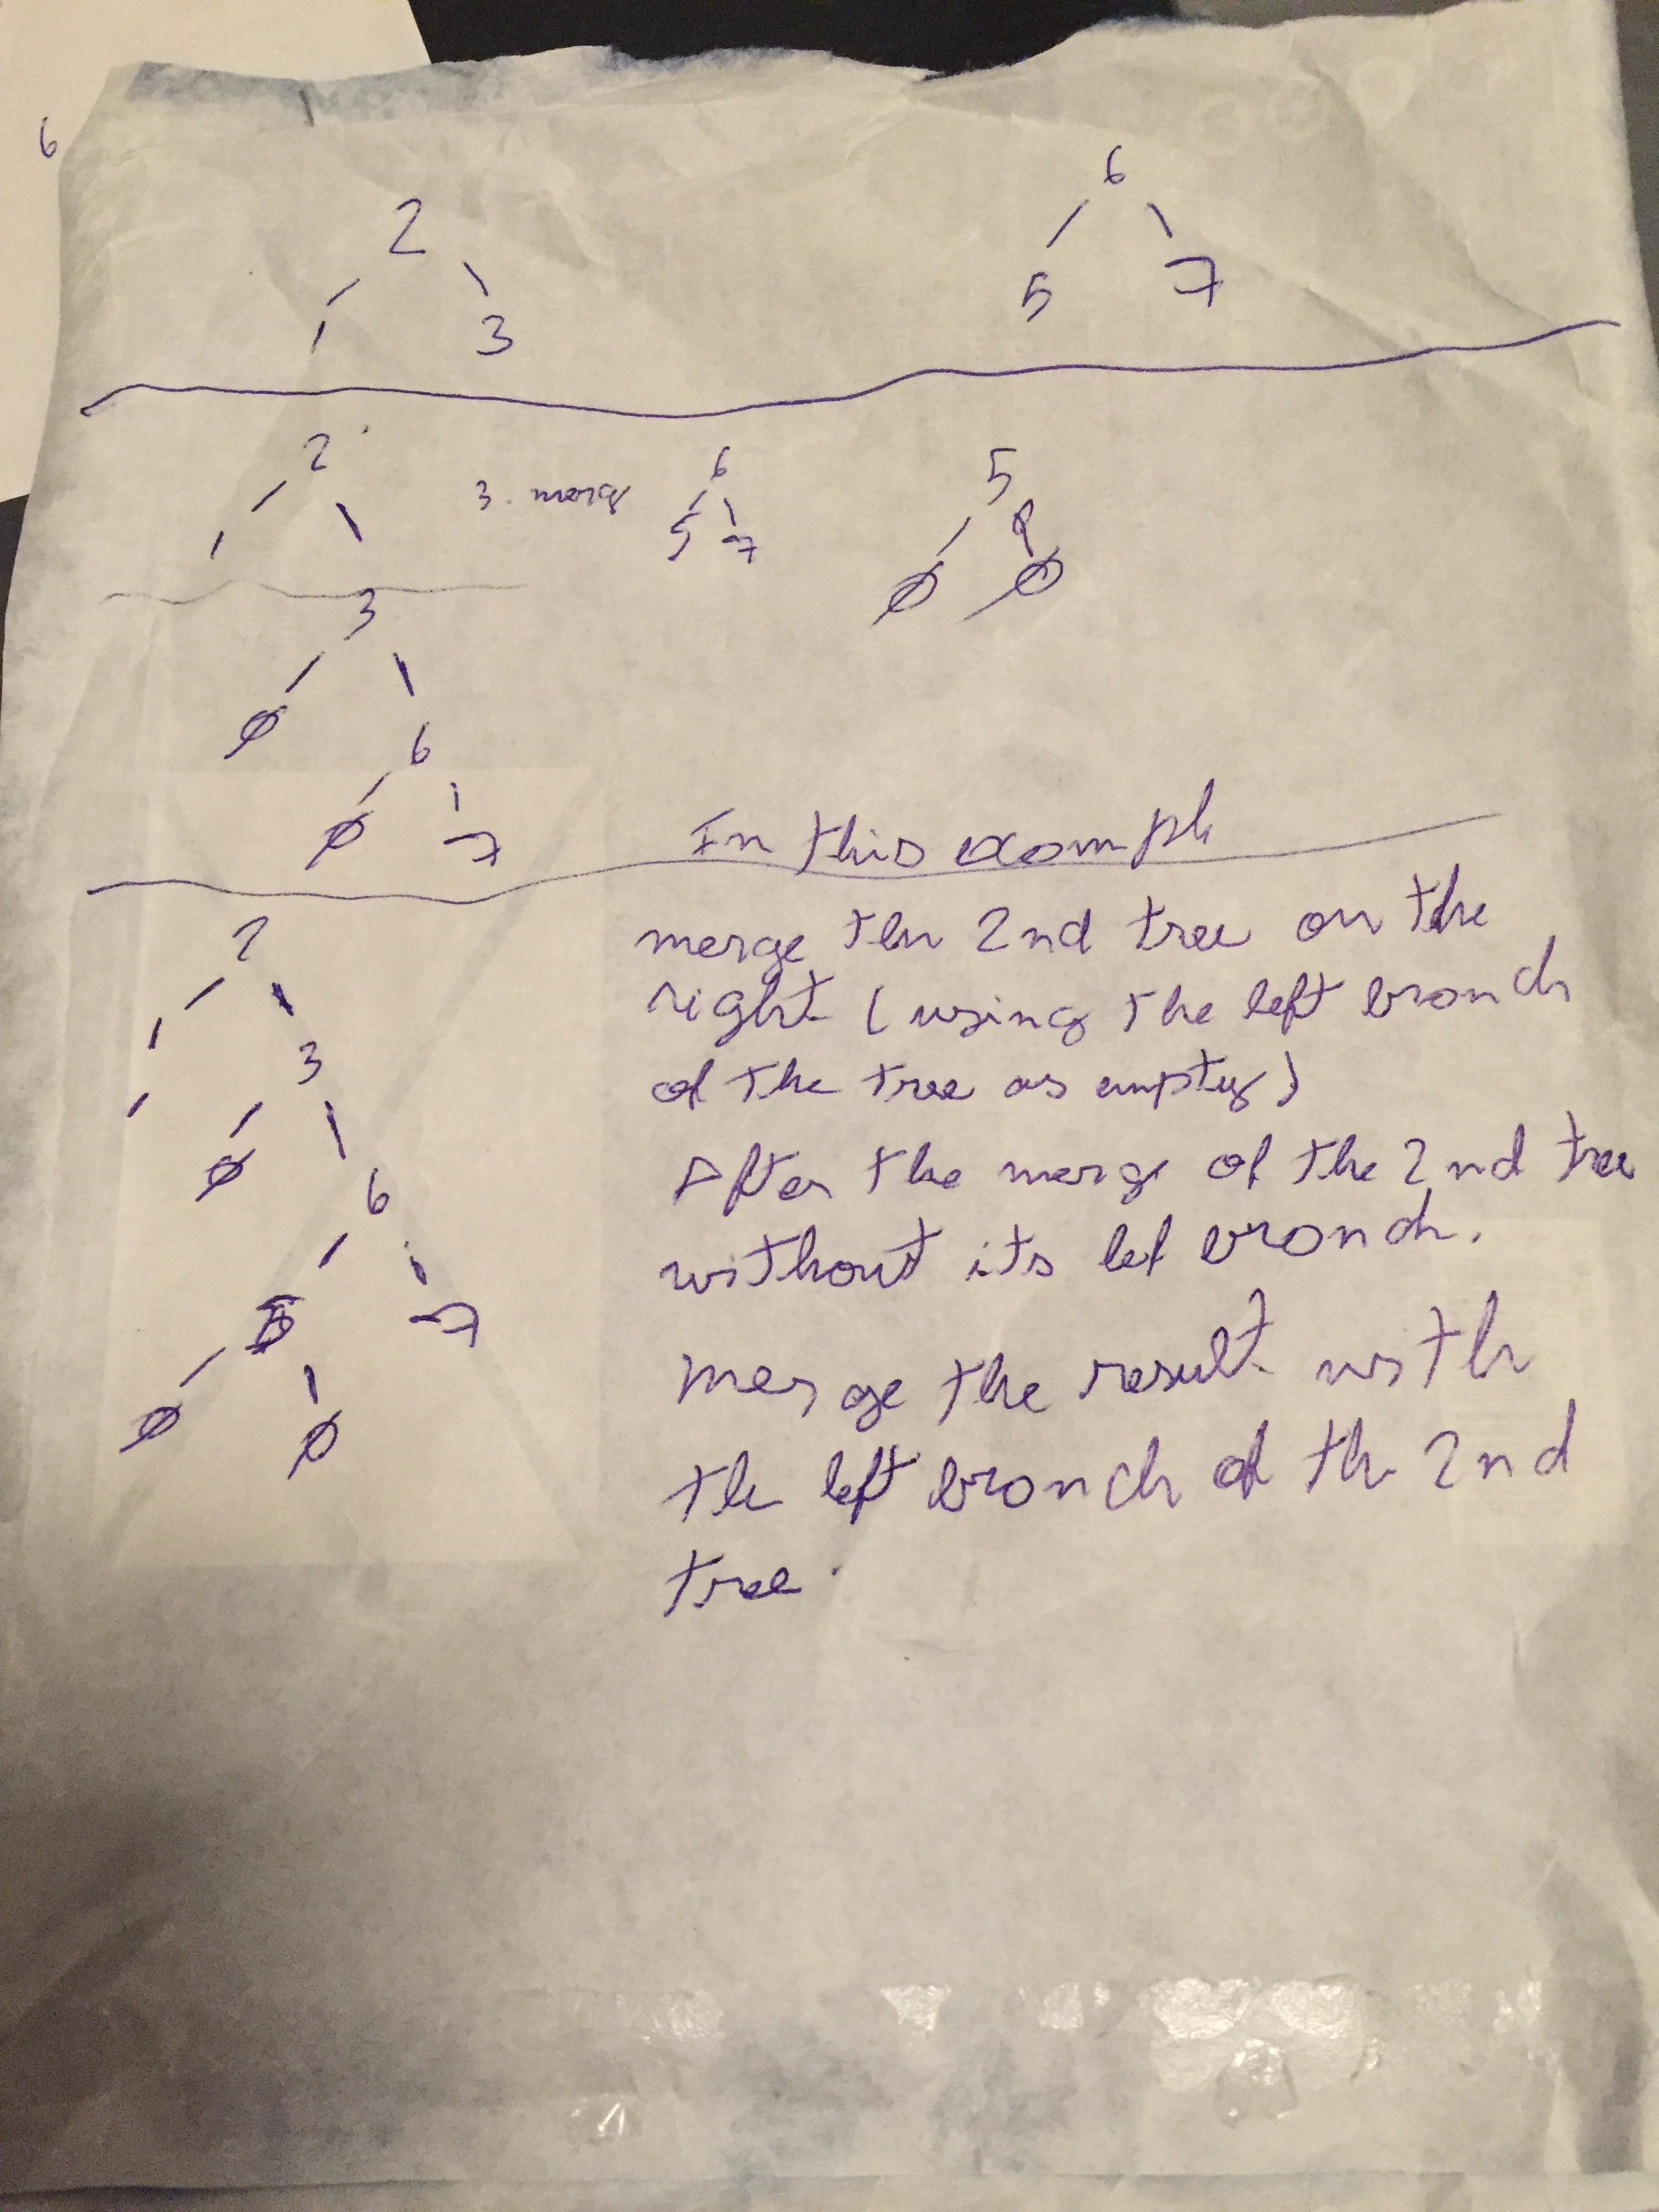 6
2
1 3
6
5 7
2
1
3. merg
6
5 7
5
∅ ∅
3
∅ 6
∅ 7
In this exampl
merge the 2nd tree on the
right (using the left branch
of the tree as empty)
After the merge of the 2nd tree
without its lef branch.
merge the result with
the left branch of the 2nd
tree.
2
1 3
∅ 6
5 7
∅ ∅